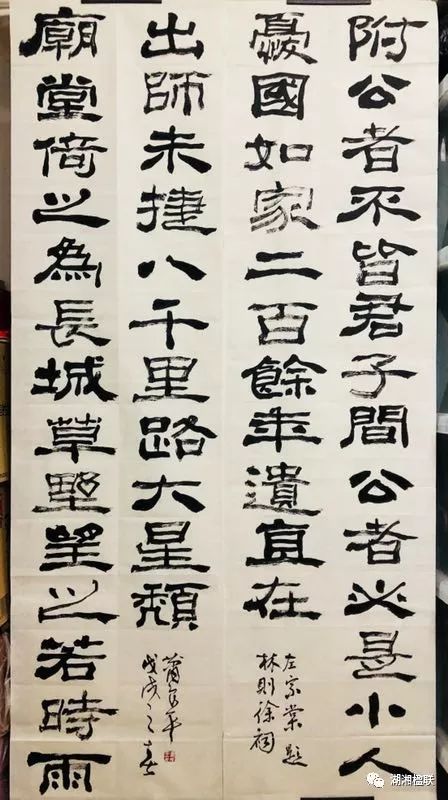 附公者不皆君子間公者必是小人
憂國如家二百餘年遺直在
左宗棠題
林則徐祠
廟堂倚之為長城草野望之若時雨
出師未捷八千里路大星頹
戊戌之春
蕭 平
湖湘楹联